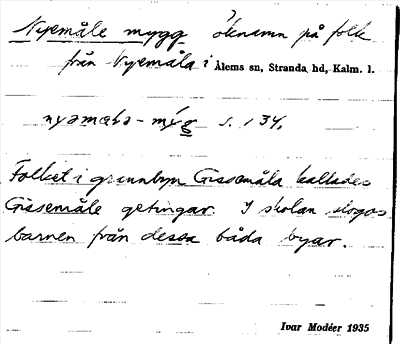 Nyemåle mygg öknamn på folk
från Nyemåla i Ålems sn, Stranda hd, Kalm. l.
s. 134.
Folket i grannbyn Gissemåla kallades
Gissemåle getingar. I skolan slogos
barnen från dessa båda byar.
Ivar Modéer 1935